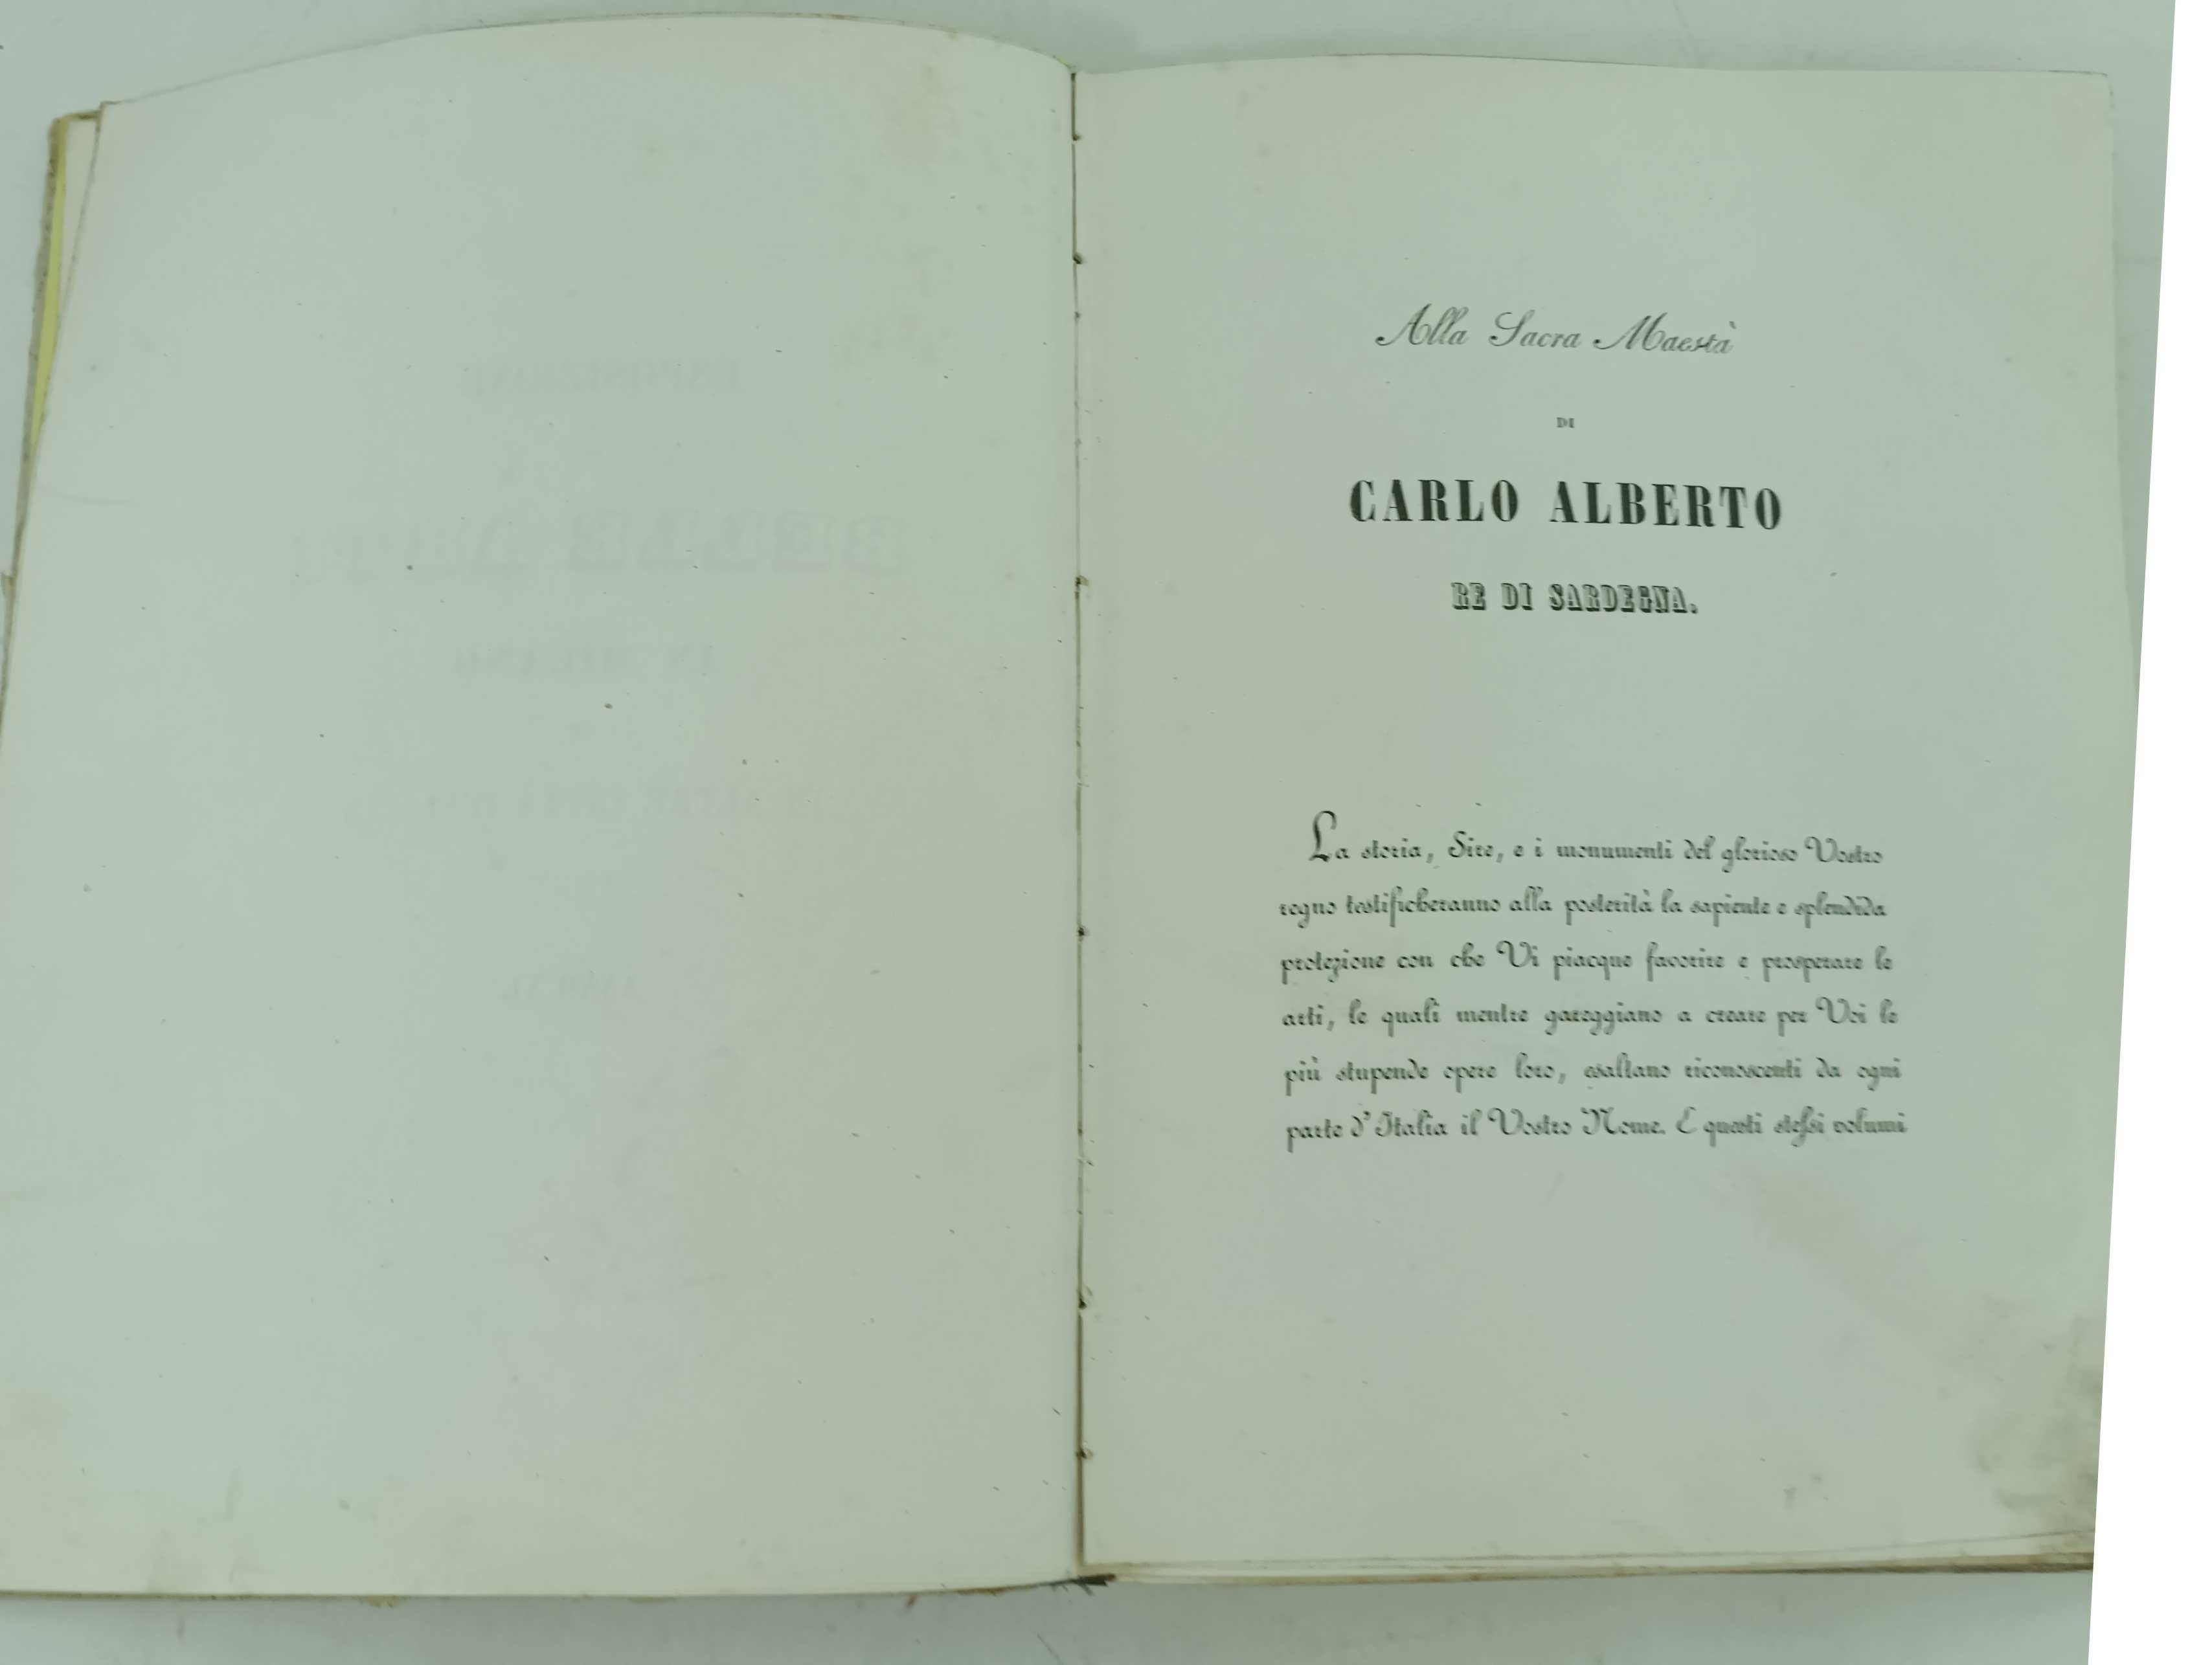 ESPOSIZIONE
BELLE
Alla Sacra Maestà
DI
CARLO ALBERTO
RE DI SARDEGNA.
La storia, Sire, e i monumenti del glorioso Vostro
regno testificheranno alla posterità la sapiente e splendida
protezione con che Vi piacque favorire e prosperare le
arti, le quali mentre gareggiano a creare per Voi le
più stupende opere loro, esaltano riconoscenti da ogni
parte d'Italia il Vostro Nome. E questi stessi volumi